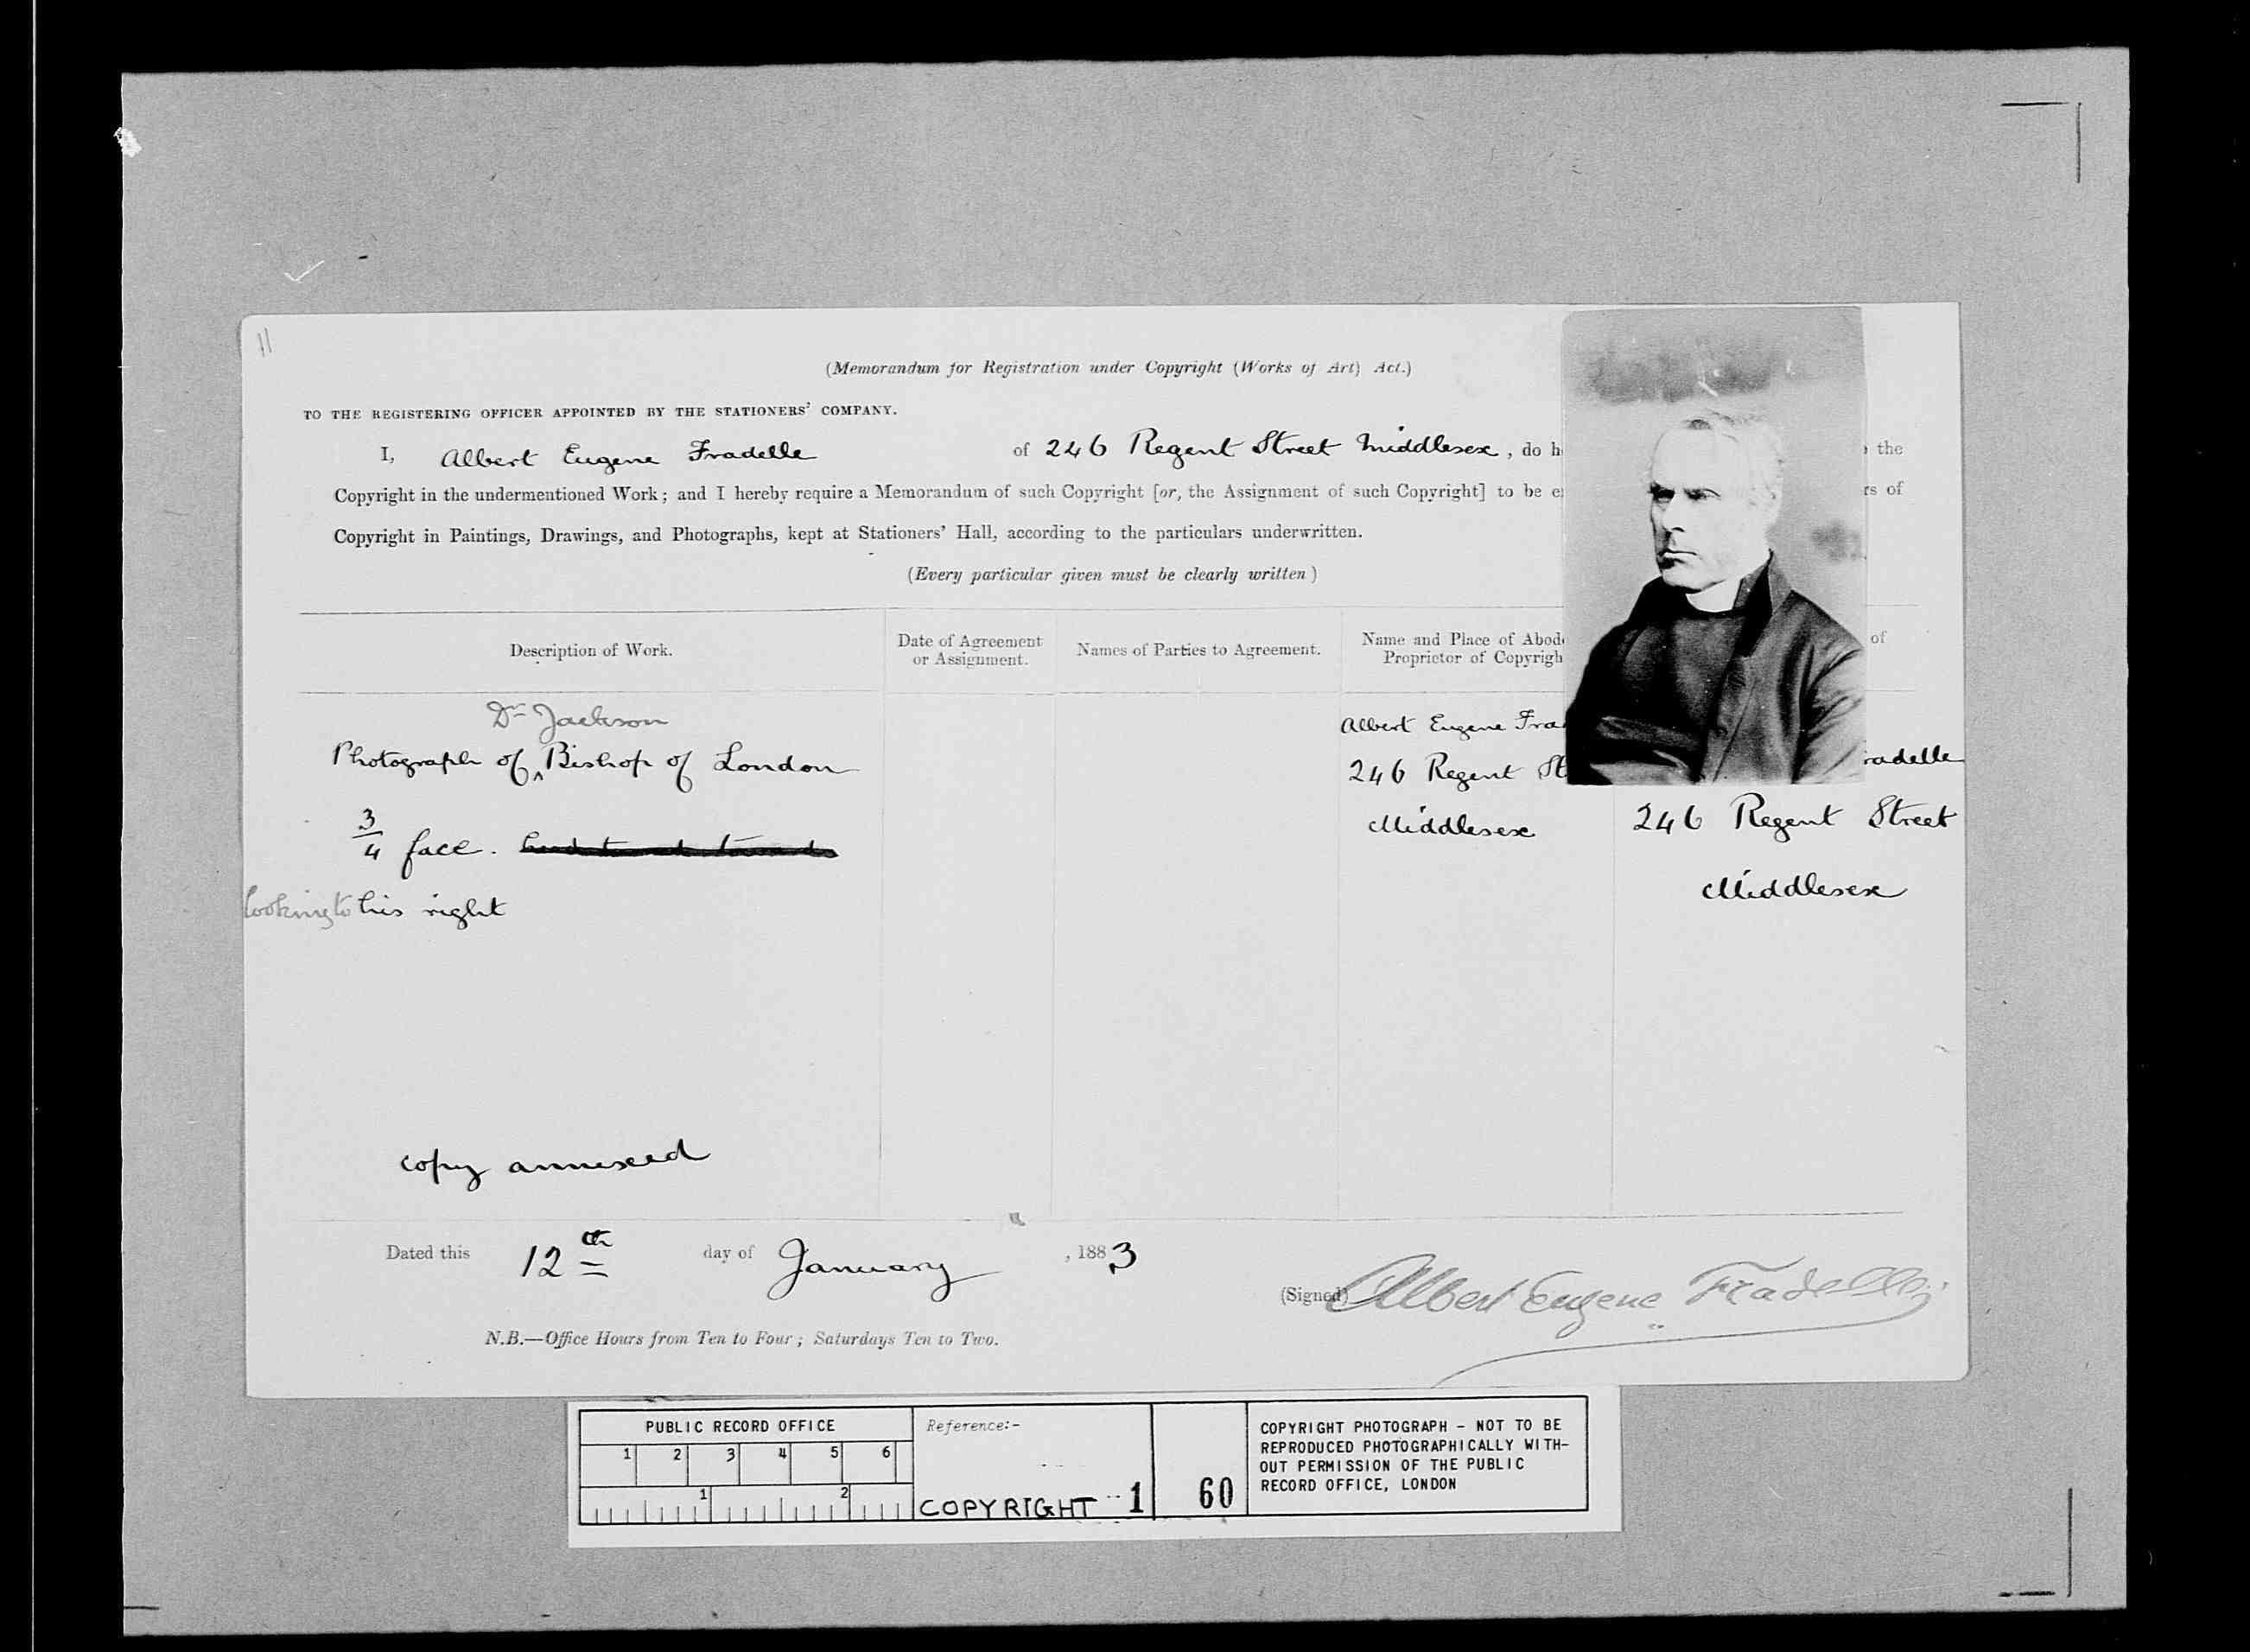 11
(Memorandum for Registration under Copyright (Works of Art) Act.)
TO THE REGISTERING OFFICER APPOINTED BY THE STATIONERS' COMPANY.
I, Albert Eugene Fradelle of 246 Regent Street Middlesex, do h the
Copyright in the undermentioned Work; and I hereby require a Memorandum of such Copyright [or, the Assignment of such Copyright] to be e rs of
Copyright in Paintings, Drawings, and Photographs, kept at Stationers' Hall, according to the particulars underwritten.
(Every particular given must be clearly written)
Description of Work.
Date of Agreement
or Assignment.
Names of Parties to Agreement.
Name and Place of Abod
Proprietor of Copyrigh
of
Dr Jackson
Photograph of ^ Bishop of London
3/4 face.
looking to his right
copy annexed
Albert Eugene Fra
246 Regent St
Middlesex
radelle
246 Regent Street
Middlesex
Dated this 12th day of January, 1883
(Signed) Albert Eugene Fradelle
N.B.—Office Hours from Ten to Four; Saturdays Ten to Two.
PUBLIC RECORD OFFICE
1 2 3 4 5 6
1 2
Reference:-
COPYRIGHT 1
60
COPYRIGHT PHOTOGRAPH - NOT TO BE
REPRODUCED PHOTOGRAPHICALLY WITH-
OUT PERMISSION OF THE PUBLIC
RECORD OFFICE, LONDON